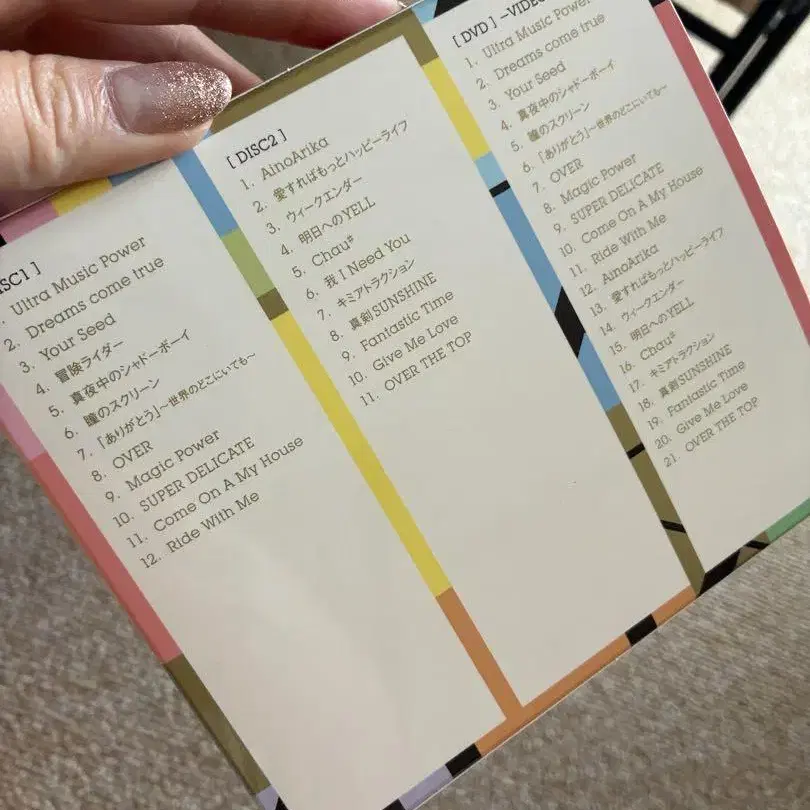 ISC1 ]
1. Ultra Music Power
2. Dreams come true
3. Your Seed
4. 冒険ライダー
5. 真夜中のシャドーボーイ
6. 瞳のスクリーン
7. 「ありがとう」〜世界のどこにいても〜
8. OVER
9. Magic Power
10. SUPER DELICATE
11. Come On A My House
12. Ride With Me
[ DISC2 ]
1. AinoArika
2. 愛すればもっとハッピーライフ
3. ウィークエンダー
4. 明日へのYELL
5. Chau#
6. 我 I Need You
7. キミアトラクション
8. 真剣SUNSHINE
9. Fantastic Time
10. Give Me Love
11. OVER THE TOP
[ DVD ] −VIDEO
1. Ultra Music Power
2. Dreams come true
3. Your Seed
4. 真夜中のシャドーボーイ
5. 瞳のスクリーン
6. 「ありがとう」〜世界のどこにいても〜
7. OVER
8. Magic Power
9. SUPER DELICATE
10. Come On A My House
11. Ride With Me
12. AinoArika
13. 愛すればもっとハッピーライフ
14. ウィークエンダー
15. 明日へのYELL
16. Chau#
17. キミアトラクション
18. 真剣SUNSHINE
19. Fantastic Time
20. Give Me Love
21. OVER THE TOP